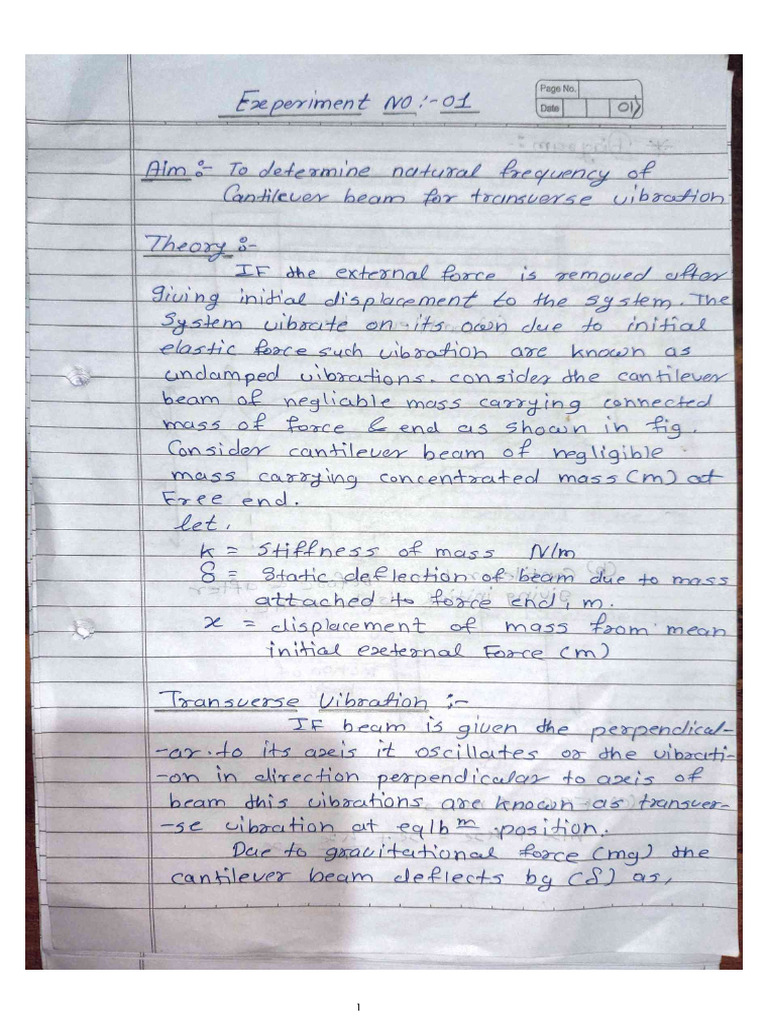 Experiment NO :- 01
Page No.
Date 01
Aim :- To determine natural frequency of
Cantilever beam for transverse vibration
Theory :-
IF the external force is removed after
giving initial displacement to the system. The
System vibrate on its own due to initial
elastic force such vibration are known as
undamped vibrations. consider the cantilever
beam of negliable mass carrying connected
mass of force & end as shown in fig.
Consider cantilever beam of negligible
mass carrying concentrated mass (m) at
Free end.
let,
k = Stiffness of mass N/m
δ = Static deflection of beam due to mass
attached to force end, m.
x = displacement of mass from mean
initial external Force (m)
Transverse Vibration :-
IF beam is given the perpendicul-
-ar. to its axis it oscillates or the vibrati-
-on in direction perpendicular to axis of
beam this vibrations are known as transver-
-se vibration at eqlbᵐ position.
Due to gravitational force (mg) the
cantilever beam deflects by (δ) as,
1